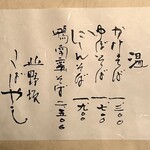 温
かけそば 一、三〇〇
ゆばそば 一、七〇〇
にしんそば 一、九〇〇
鴨南蛮そば 二、五〇〇
そばやし